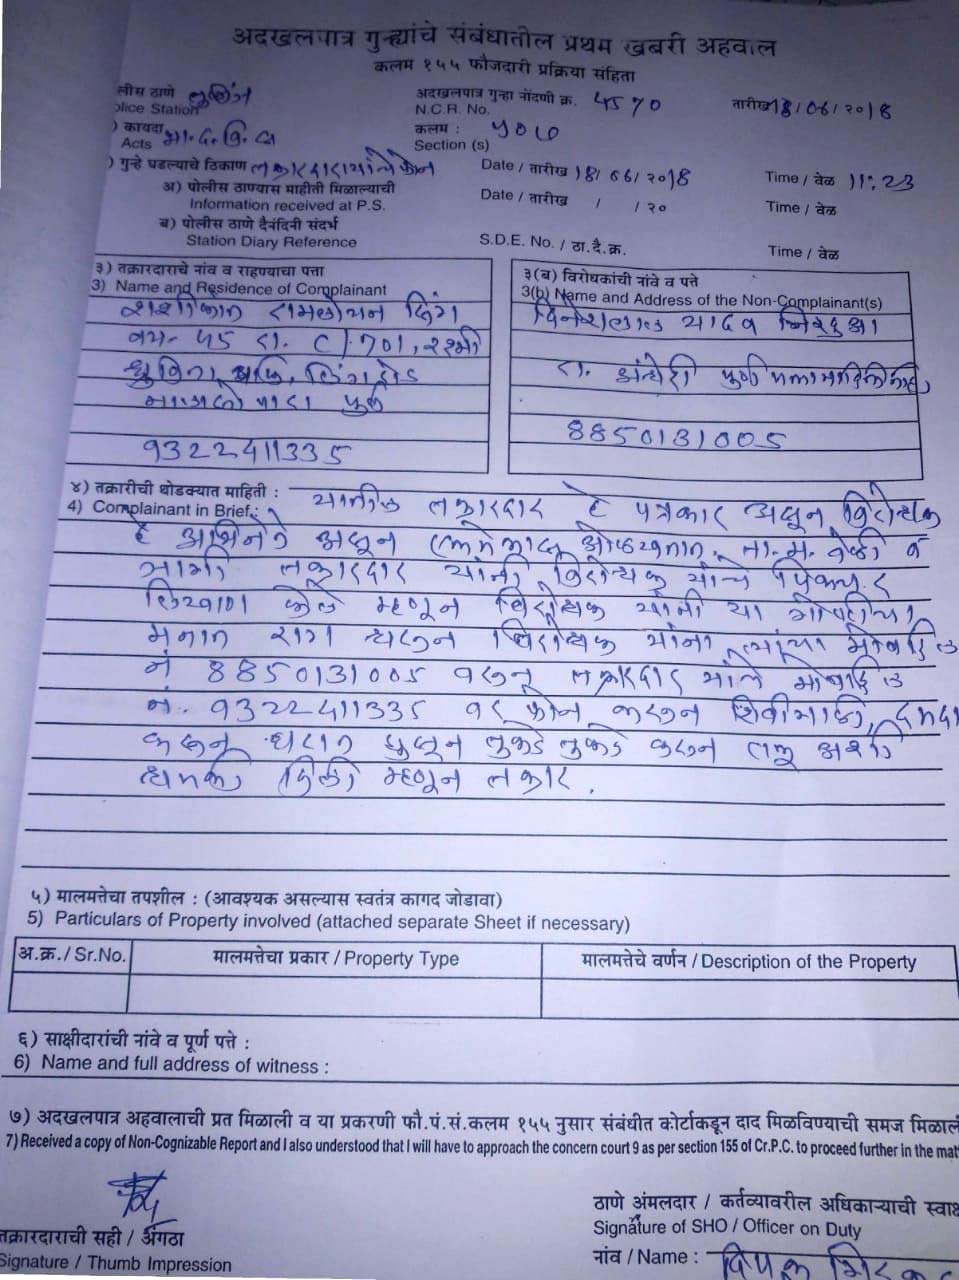 अदखलपात्र गुन्ह्यांचे संबंधातील प्रथम खबरी अहवाल
कलम १५५ फौजदारी प्रक्रिया संहिता
लीस ठाणे
olice Station
अदखलपात्र गुन्हा नोंदणी क्र. 4570
N.C.R. No.
तारीख 18/06/२०१8
) कायदा भा.द.वि.स
Acts
कलम : 507
Section (s)
) गुन्हे घडल्याचे ठिकाण तक्रारदार यांचे फोन
Date / तारीख 18/06/२०१8
Time / वेळ 11:23
अ) पोलीस ठाण्यास माहीती मिळाल्याची
Information received at P.S.
Date / तारीख / / २०
Time / वेळ
ब) पोलीस ठाणे दैनंदिनी संदर्भ
Station Diary Reference
S.D.E. No. / ठा.दै.क्र.
Time / वेळ
३) तक्रारदाराचे नांव व राहण्याचा पत्ता
3) Name and Residence of Complainant
शशीकांत रामलोचन सिंग
वय- 45 रा. C/701, रश्मी
लिंग रोड
पूर्व
9322411335
३(ब) विरोधकांची नांवे व पत्ते
3(b) Name and Address of the Non-Complainant(s)
दिनेशलाल यादव निरहुआ
रा. अंधेरी पूर्व
8850131005
४) तक्रारीची थोडक्यात माहिती :
4) Complainant in Brief :
यातील तक्रारदार हे पत्रकार असून विरोधक
हे अभिनेते असून ओळखतात. ता. म. वेळी व
जागी तक्रारदार यांनी विरोधक यांचे
लिखाण केले म्हणून विरोधक यांनी या गोष्टीचा
मनात राग धरून विरोधक यांनी त्यांच्या मोबाईल
नं 8850131005 वरून तक्रारदार यांचे मोबाईल
नं. 9322411335 वर फोन करून शिवीगाळी, दमदा
करून घरात घुसून तुकडे तुकडे करून टाकू अशी
धमकी दिली म्हणून तक्रार.
५) मालमत्तेचा तपशील : (आवश्यक असल्यास स्वतंत्र कागद जोडावा)
5) Particulars of Property involved (attached separate Sheet if necessary)
अ.क्र. / Sr.No. मालमत्तेचा प्रकार / Property Type मालमत्तेचे वर्णन / Description of the Property
६) साक्षीदारांची नांवे व पूर्ण पत्ते :
6) Name and full address of witness :
७) अदखलपात्र अहवालाची प्रत मिळाली व या प्रकरणी फौ.पं.सं.कलम १५५ नुसार संबंधीत कोर्टाकडून दाद मिळविण्याची समज मिळाली
7) Received a copy of Non-Cognizable Report and I also understood that I will have to approach the concern court 9 as per section 155 of Cr.P.C. to proceed further in the mat
तक्रारदाराची सही / अंगठा
Signature / Thumb Impression
ठाणे अंमलदार / कर्तव्यावरील अधिकाऱ्याची स्वाक्ष
Signature of SHO / Officer on Duty
नांव / Name : दिपक